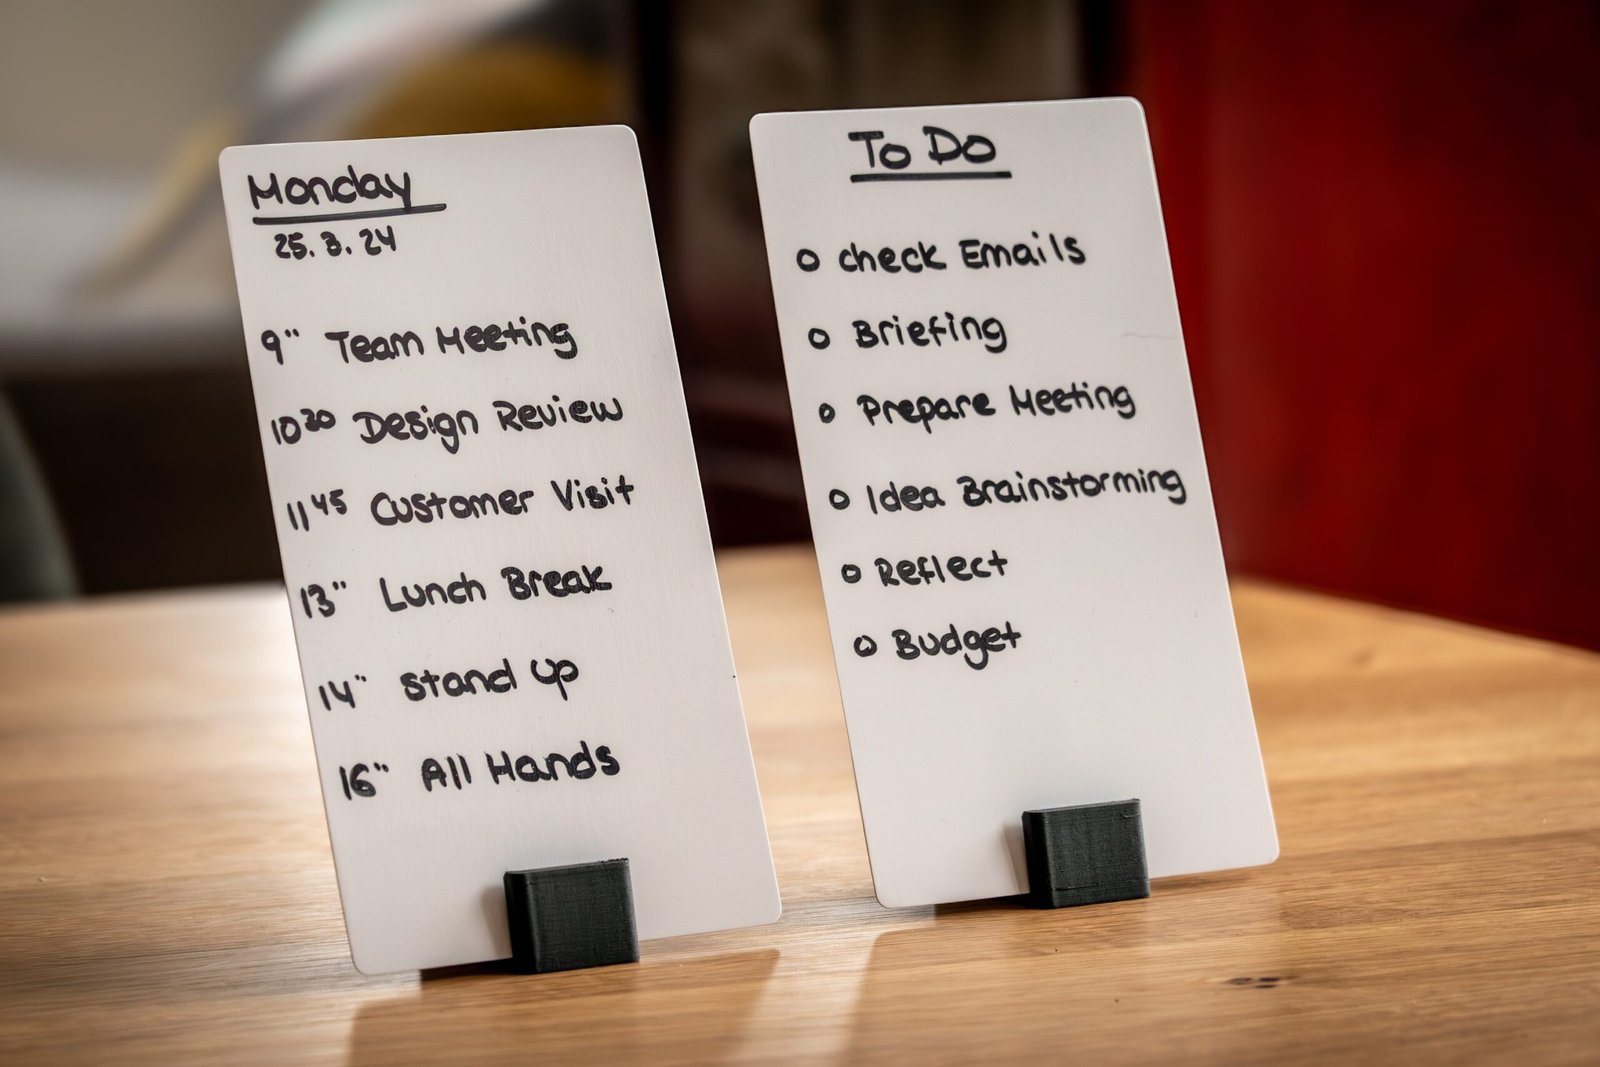 Monday
25.3.24
9" Team Meeting
10³⁰ Design Review
11⁴⁵ Customer Visit
13" Lunch Break
14" Stand up
16" All Hands
To Do
o check Emails
o Briefing
o Prepare Meeting
o Idea Brainstorming
o Reflect
o Budget